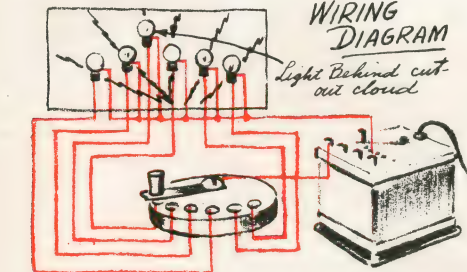 WIRING
DIAGRAM
Light Behind cut-
out cloud